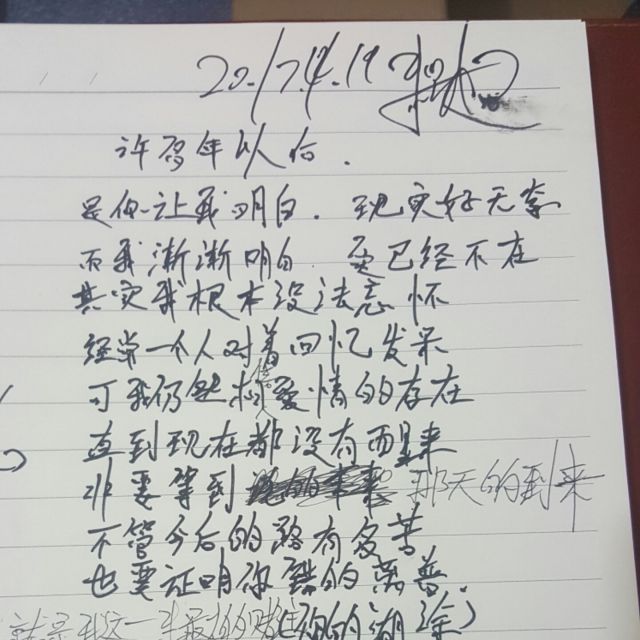 2017.4.19
许多年以后.
是你让我明白. 现实好无奈
而我渐渐明白. 爱已经不在
其实我根本没法忘怀
经常一个人对着回忆发呆
可我仍然相信爱情的存在
直到现在都没有醒来
非要等到 那天的到来
不管今后的路有多苦
也要证明你错的离谱.
就是我这一
的糊涂